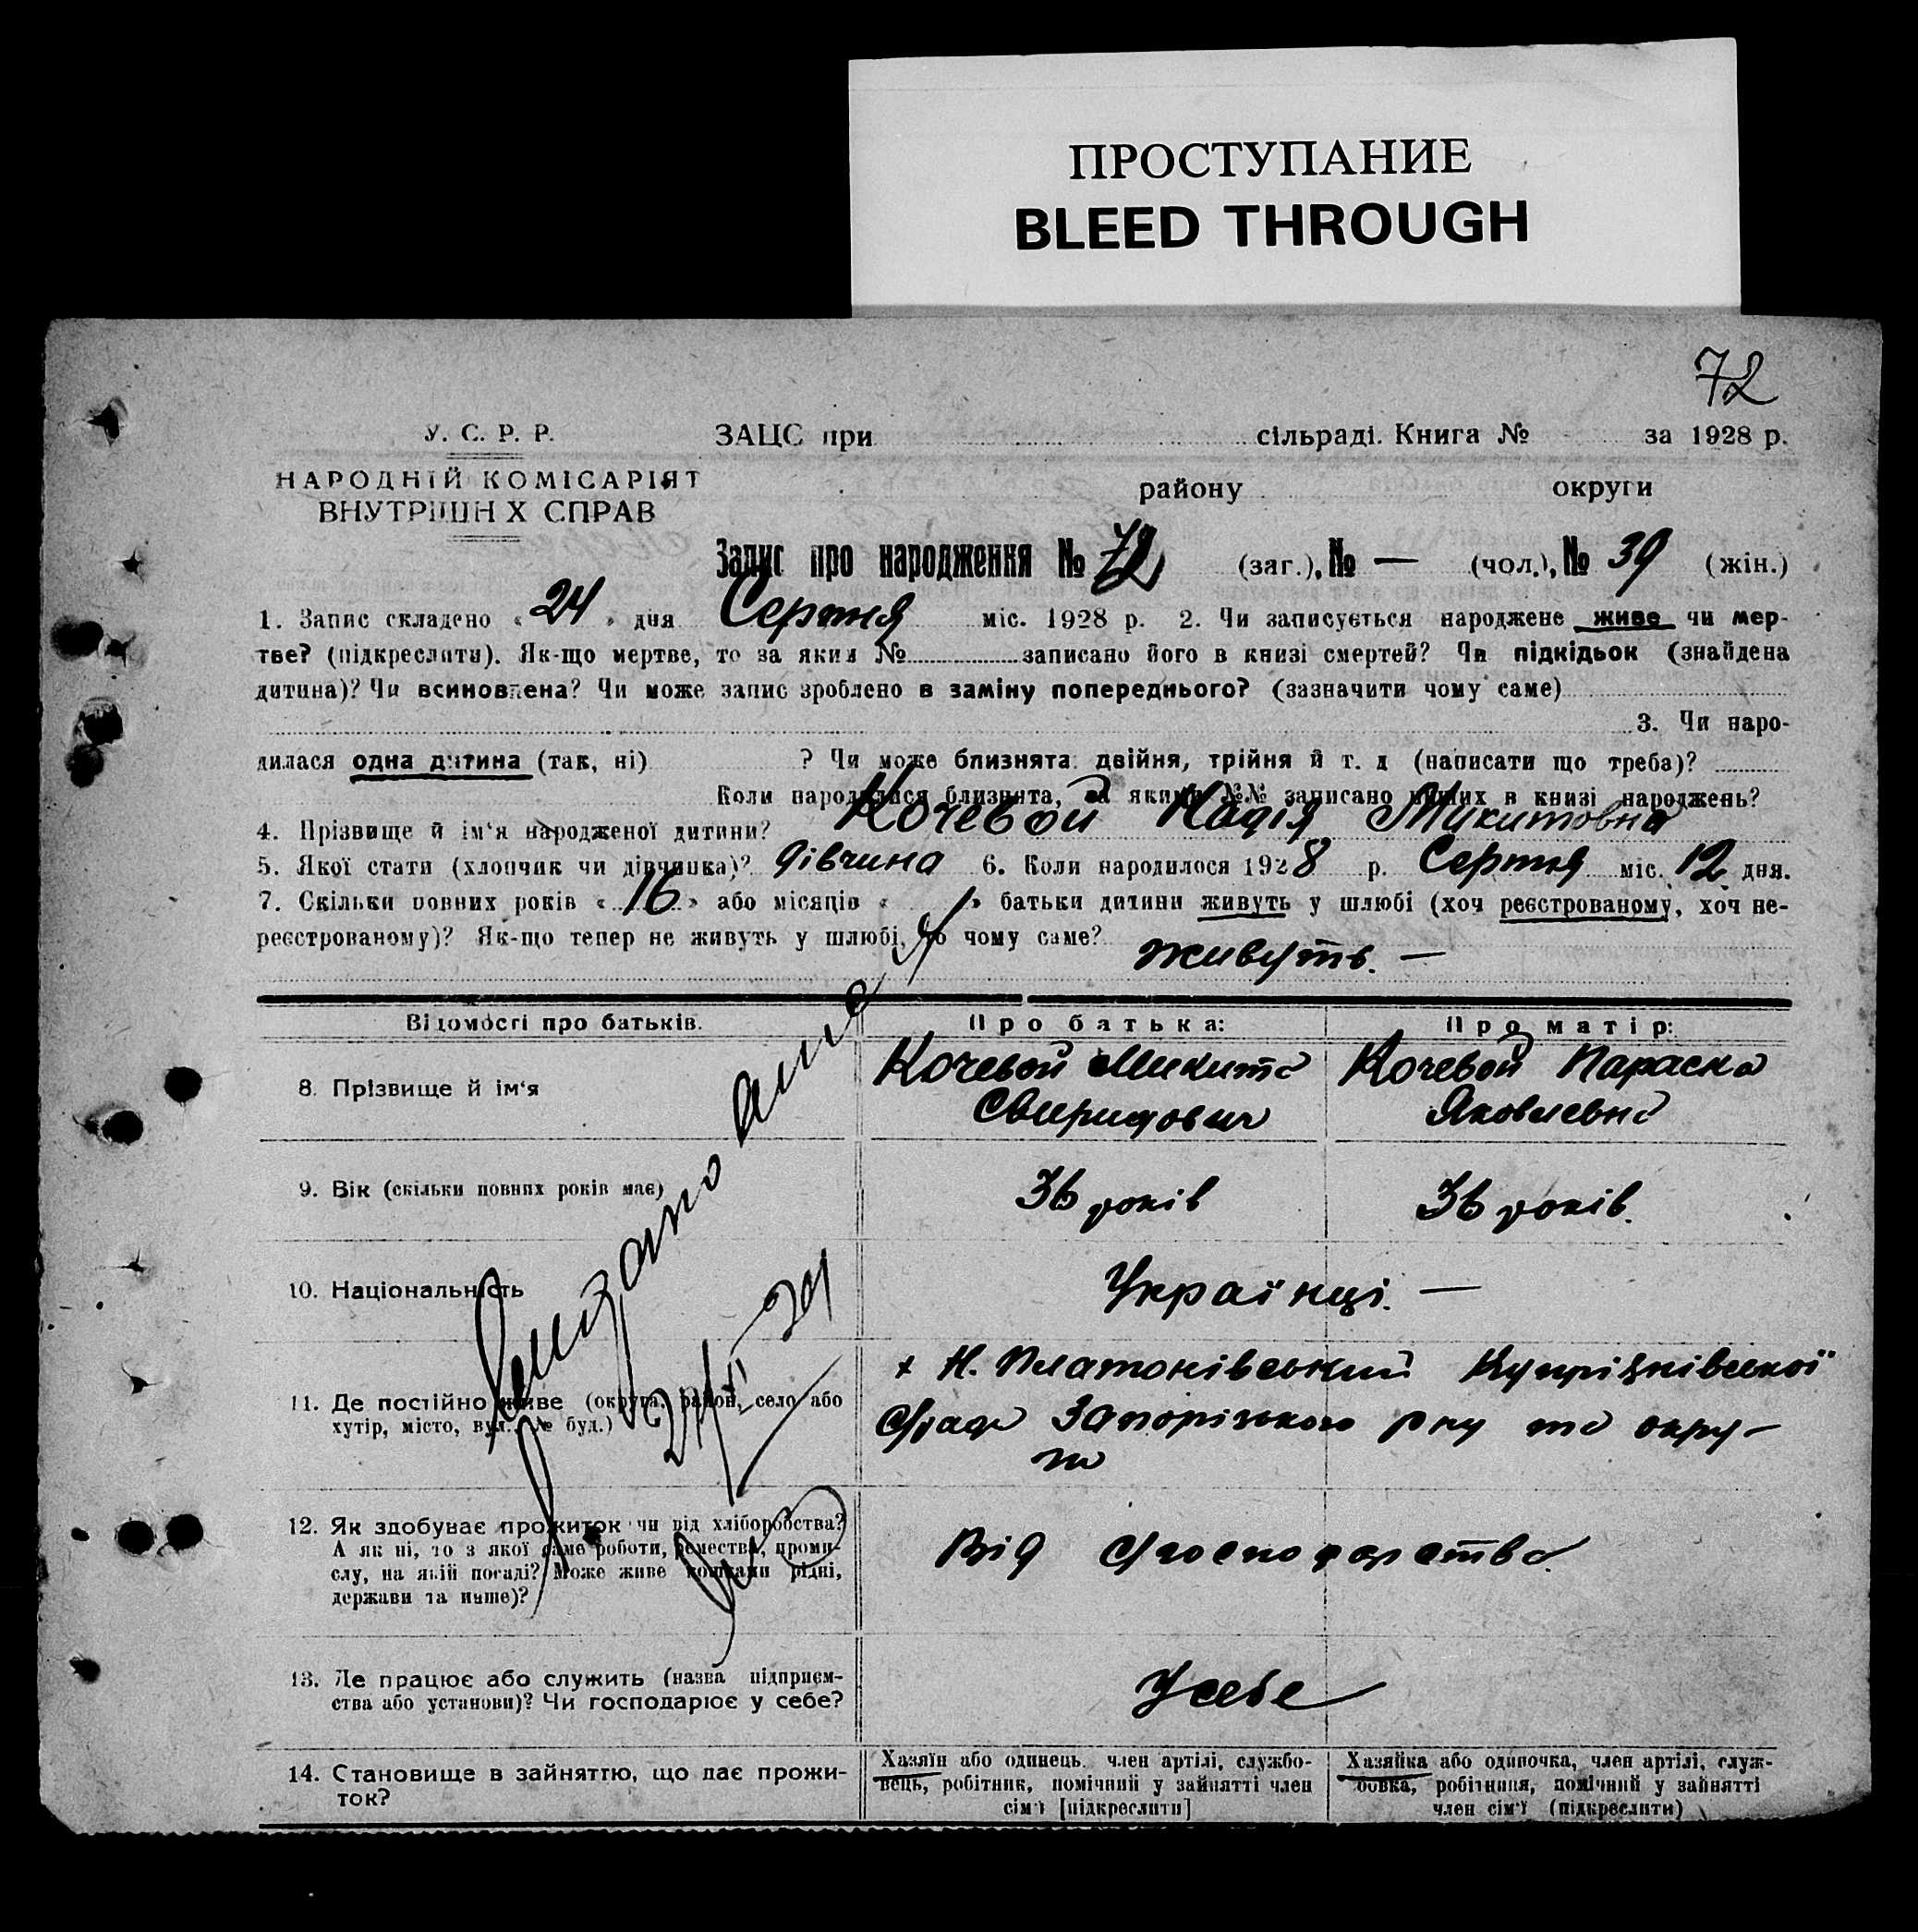 ПРОСТУПАНИЕ
BLEED THROUGH
72
У. С. Р. Р.
НАРОДНІЙ КОМІСАРІЯТ
ВНУТРІШН Х СПРАВ
ЗАЦС при сільраді. Книга № за 1928 р.
району округи
Запис про народження № 72 (заг.), № — (чол.), № 39 (жін.)
1. Запис складено « 24 » дня Серпня міс. 1928 р. 2. Чи записується народжене живе чи мер-
тве? (підкреслити). Як-що мертве, то за яким № записано його в книзі смертей? Чи підкідьок (знайдена
дитина)? Чи всиновлена? Чи може запис зроблено в заміну попереднього? (зазначити чому саме)
3. Чи наро-
дилася одна дитина (так, ні) ? Чи може близнята: двійня, трійня й т. д (написати що треба)?
Коли народилися близнята, за якими №№ записано инших в книзі народжень?
4. Прізвище й ім'я народженої дитини? Кочевой Надія Микитовна
5. Якої стати (хлопчик чи дівчинка)? дівчина 6. Коли народилося 1928 р. Серпня міс. 12 дня.
7. Скільки повних років « 16 » або місяців « » батьки дитини живуть у шлюбі (хоч реєстрованому, хоч не-
реєстрованому)? Як-що тепер не живуть у шлюбі, то чому саме? живуть. —
Відомості про батьків. Про батька: Про матір:
8. Прізвище й ім'я
Кочевой Микита
Свиридович
Кочевой Параска
Яковлевна
9. Вік (скільки повних років має) 36 років 36 років.
10. Національність Українці. —
11. Де постійно живе (округа, район, село або
хутір, місто, вул., № буд.)
х Н. Платонівський Купріянівської
с/ради Запорізького р-ну та окру-
ги
12. Як здобуває прожиток чи від хліборобства?
А як ні, то з якої саме роботи, ремества, проми-
слу, на якій посаді? Може живе коштами рідні,
держави та инше)?
Від с/господарства.
13. Де працює або служить (назва підприєм-
ства або установи)? Чи господарює у себе?
У себе
14. Становище в зайняттю, що дає прожи-
ток?
Хазяїн або одинець, член артілі, службо-
вець, робітник, помічний у зайнятті член
сім'ї [підкреслити]
Хазяйка або одиночка, член артілі, служ-
бовка, робітниця, помічний у зайнятті
член сім'ї (підкреслити)